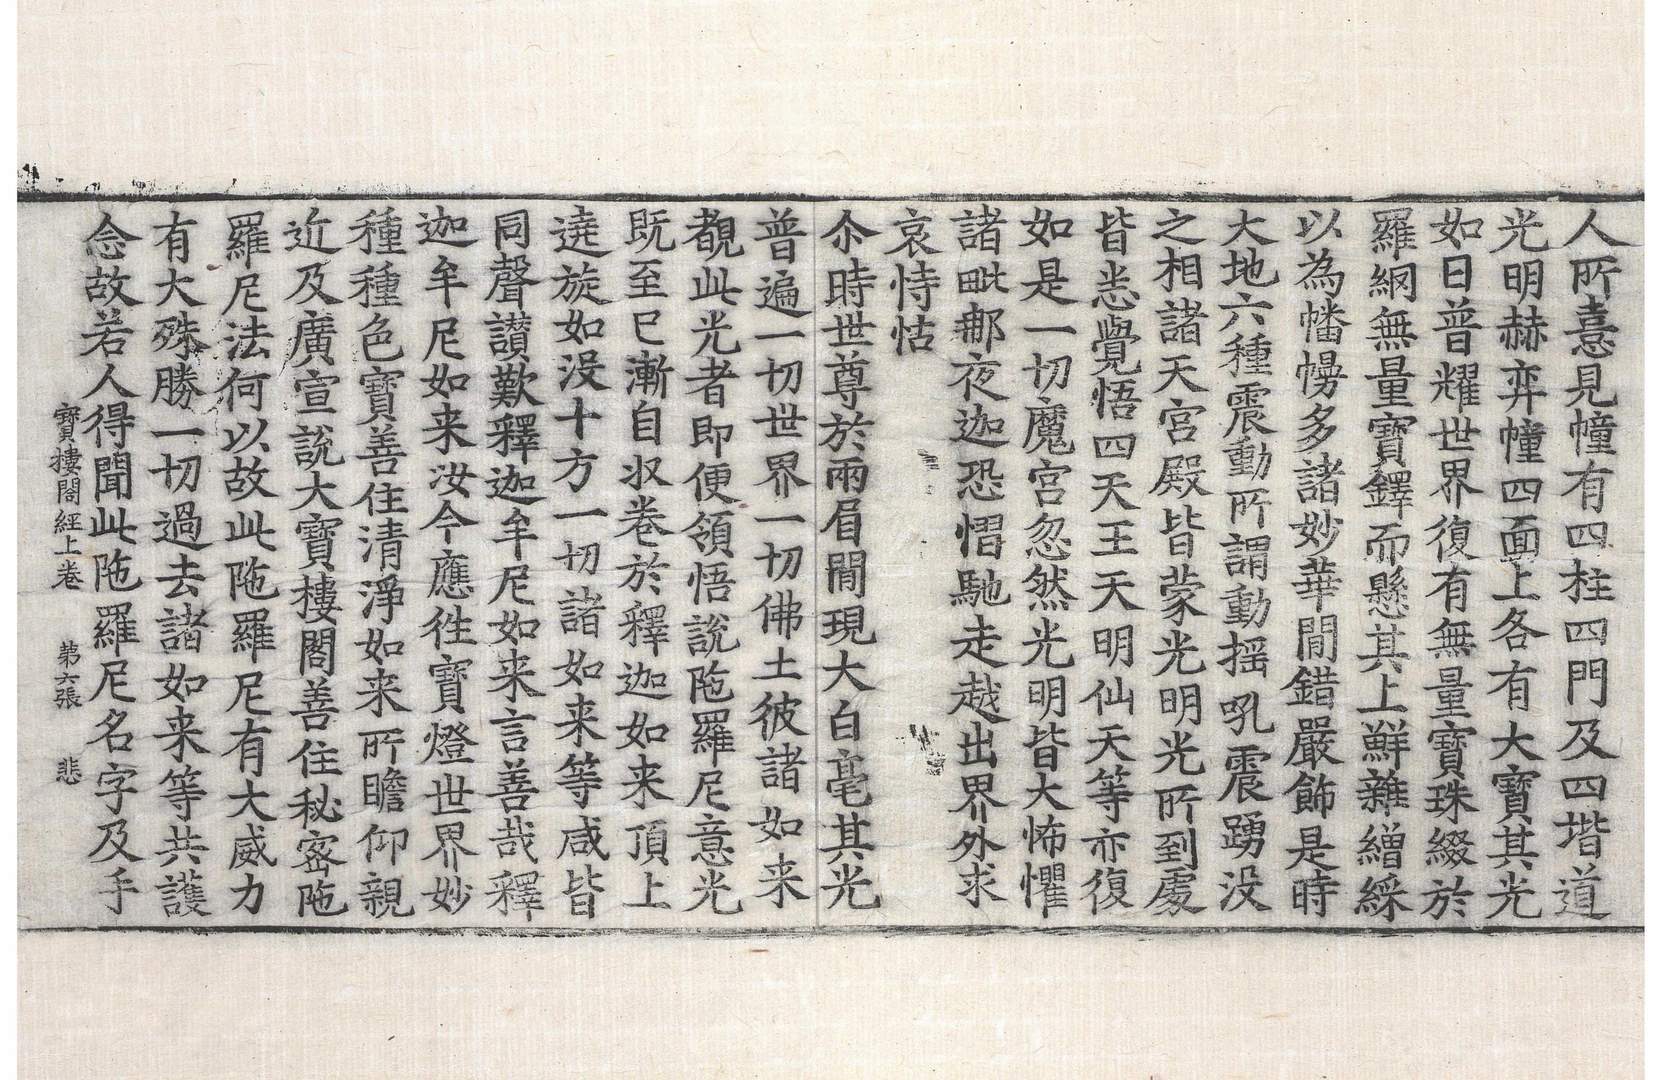 人所憙見幢有四柱四門及四堦道
光明赫弈幢四面上各有大寶其光
如日普耀世界復有無量寶珠綴於
羅網無量寶鐸而懸其上鮮雜繒綵
以為幡幔多諸妙華間錯嚴飾是時
大地六種震動所謂動摇吼震踴没
之相諸天宮殿皆蒙光明光所到處
皆悉覺悟四天王天明仙天等亦復
如是一切魔宮忽然光明皆大怖懼
諸毗郍夜迦恐慴馳走越出界外求
哀恃怙
尒時世尊於兩眉間現大白毫其光
普遍一切世界一切佛土彼諸如来
覩此光者即便領悟說陁羅尼意光
既至已漸自収卷於釋迦如来頂上
遶旋如没十方一切諸如来等咸皆
同聲讃歎釋迦牟尼如来言善哉釋
迦牟尼如来汝今應徃寶燈世界妙
種種色寶善住清淨如来所瞻仰親
近及廣宣說大寶樓閣善住秘密陁
羅尼法何以故此陁羅尼有大威力
有大殊勝一切過去諸如来等共護
念故若人得聞此陁羅尼名字及手
寶樓閣經上卷 第六張 悲